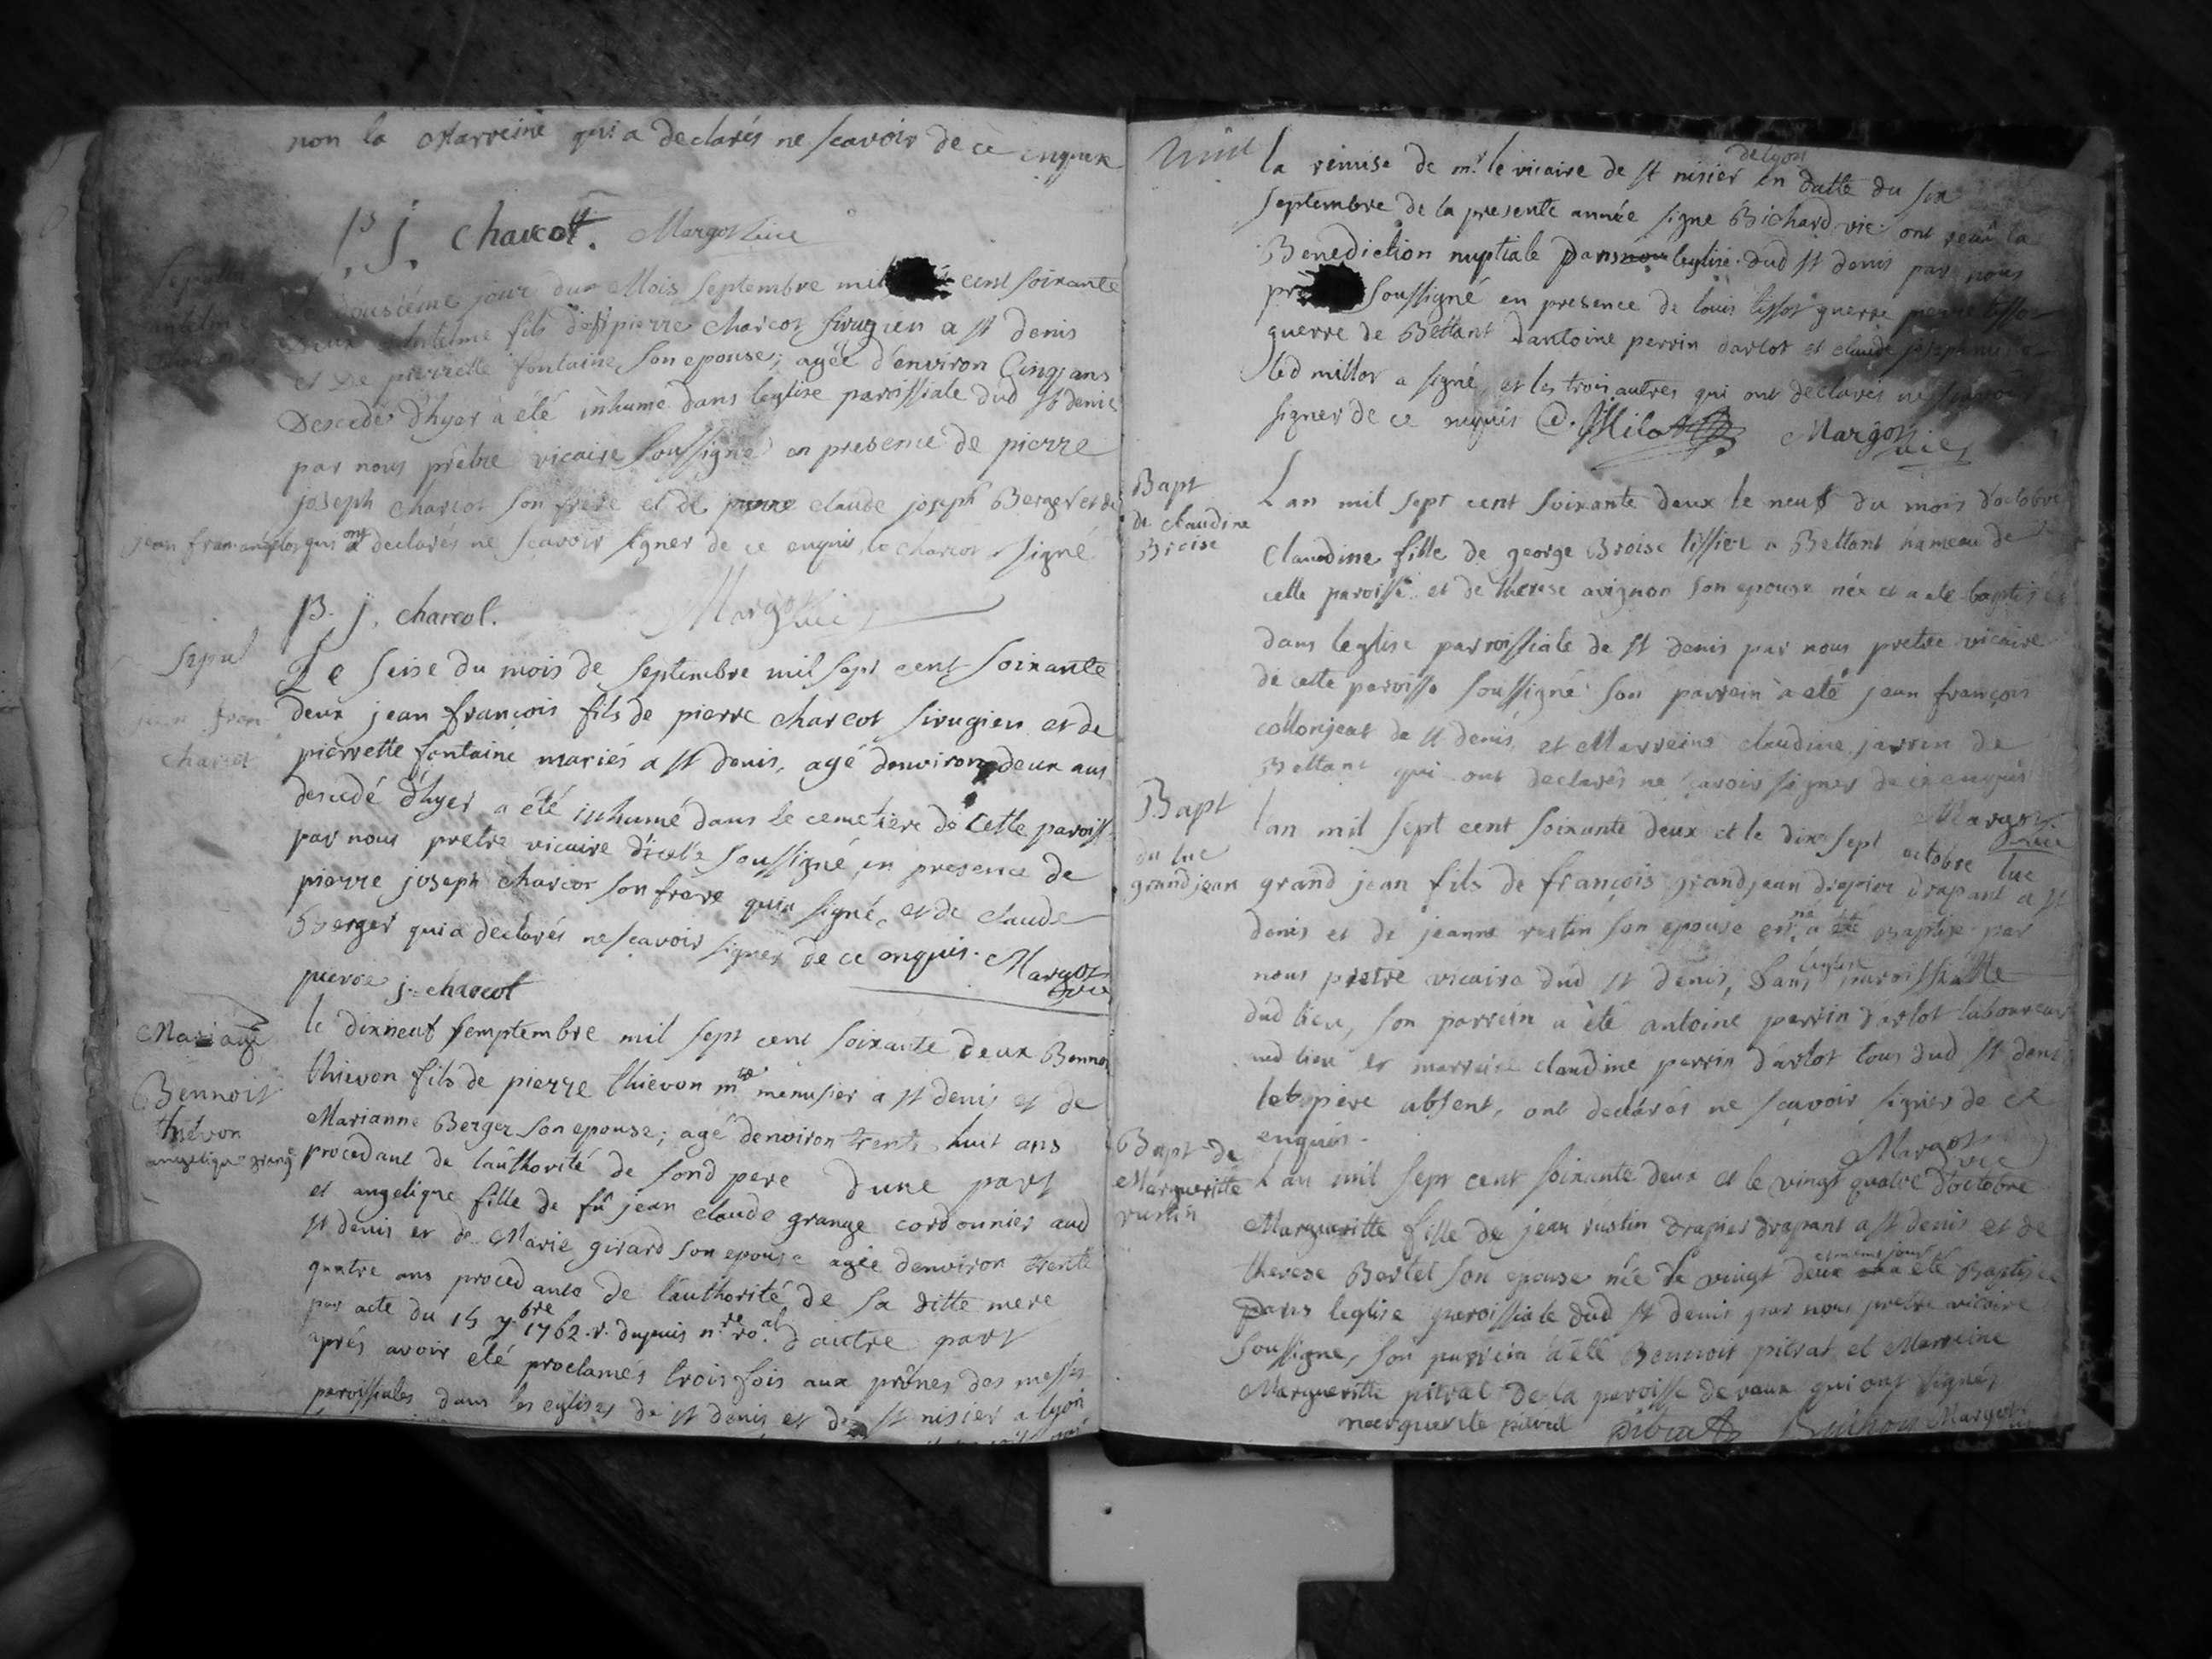 non la Marreine qui a declarés ne scavoir de ce enquis
p. j. charcot. Margot vice
Sepulture
jour du Mois septembre mil cent soixante
deux antelme fils de pierre charcot sirugien a st denis
et De pierrette fontaine son epouse; agée d'environ Cinq ans
Decedé d'hyer a eté inhumé dans leglise paroissiale dud st denis
par nous prêtre vicaire soussigné en presence de pierre
joseph charcot son frere et de claude joseph Berger et de
qui ont declarés ne scavoir signer de ce enquis le charcot signé
p. j. charcot. Margot vice
Sepul
jean fran
charcot
Le seise du mois de septembre mil sept cent soixante
deux jean françois fils de pierre charcot sirugien et de
pierrette fontaine mariés a st denis, agé denviron deux ans
decedé d'hyer a été inhumé dans le cemetiere de cette paroiss
par nous pretre vicaire d'icelle soussigné, en presence de
pierre joseph charcot son frere qui a signé, et de claude
Berger qui a declarés ne scavoir signer de ce enquis. Margot vice
pierre j. charcot
Mariage
Bennoit
thievon
angelique grange
le dixneuf semptembre mil sept cent soixante deux Bennoi
thievon fils de pierre thievon mtre menusier a st denis et de
Marianne Berger son epouse; agé denviron trente huit ans
procedant de lauthorité de sond pere dune part
et angelique fille de fû jean claude grange cordonnier aud
st denis et de Marie girard son epouse agée denviron trente
quatre ans procedante de lauthorité de sa ditte mere
par acte du 15 7bre 1762 r. dupuis nre roal. d'autre part
aprés avoir été proclamés trois fois aux prônes des messes
paroissiales dans les eglises de st denis et de st nisier a lyon
la remise de mr. le vicaire de st nisier de lyon en datte du six
septembre de la presente année signé Bichard vic. ont reçu la
Benediction nuptiale dans leglise dud st denis par nous
soussigné en presence de louis tissot guerre pierre tissot
guerre de Bettant dantoine perrin darlot et claude joseph millot
led millot a signé, et les trois autres qui ont declarés ne scavoir
signer de ce requis C. j. Milot Margot vice
Bapt
de claudine
Broise
Lan mil sept cent soixante deux le neuf du mois d'octobre
Claudine fille de george Broise tissier a Bettant hameau de
cette paroisse et de therese avignon son epouse née et a eté baptisée
dans leglise parroissiale de st denis par nous pretre vicaire
de cette paroisse soussigné son parrein a eté jean françois
collonjeat de st denis, et Marreine claudine jarren de
Bettant qui ont declarés ne scavoir signer de ce enquis
Margot vice
Bapt
du luc
grandjean
lan mil sept cent soixante deux et le dix sept octobre luc
grand jean fils de françois grandjean drapier drapant a st
denis et de jeanne rustin son epouse est né a eté Baptisé par
nous pretre vicaire dud st denis, dans leglise paroissialle
dud lieu, son parrein a été antoine perrin d'arlot laboureur
aud lieu et marreine claudine perrin d'arlot tous dud st denis
le père absent, ont declarés ne scavoir signer de ce
enquis. Margot vice
Bapt de
Margueritte
rustin
Lan mil sept cent soixante deux et le vingt quatre d'octobre
Margueritte fille de jean rustin drapier drapant a st denis et de
therese Bertet son epouse née le vingt deux et même jour a eté Baptisée
Dans leglise paroissiale dud st denis par nous pretre vicaire
soussigné, son parrein a été Bennoit pitrat et Marreine
Margueritte pitrat de la paroisse de vaux qui ont signés
marguerite pitrat Margot